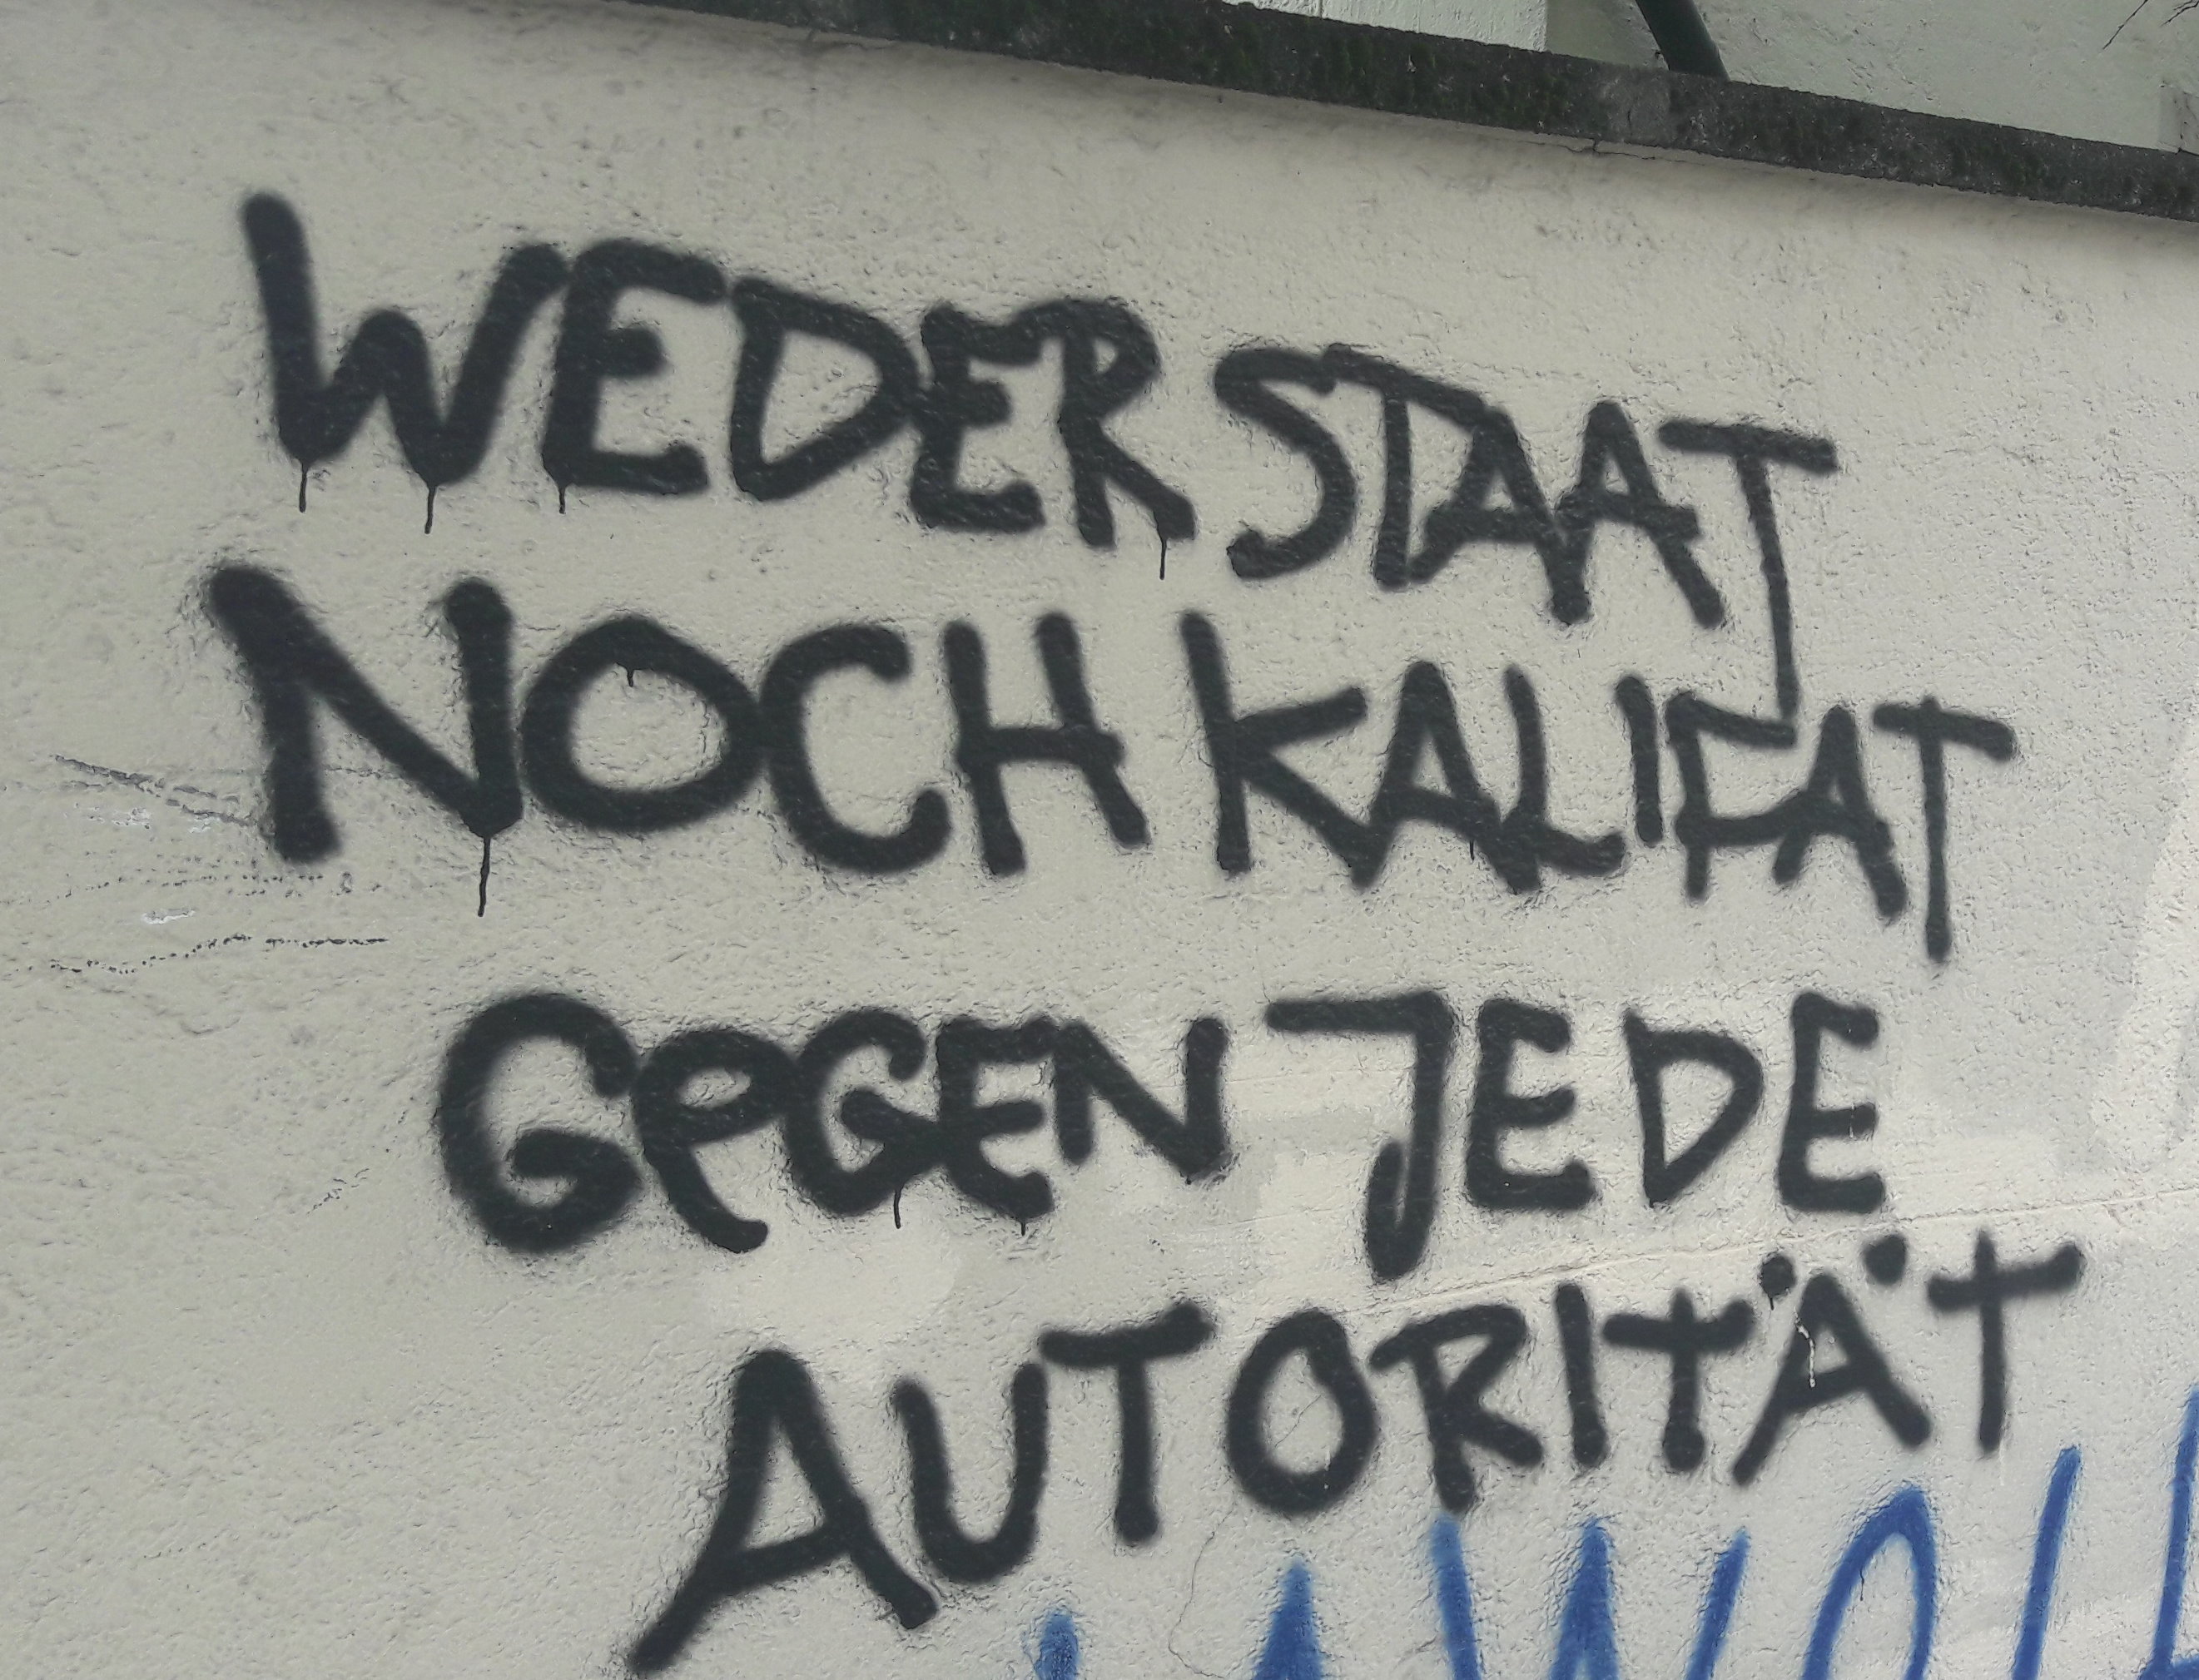 WEDER STAAT
NOCH KALIFAT
GEGEN JEDE
AUTORITÄT